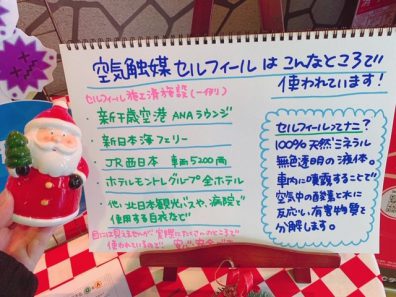 空気触媒セルフィールはこんなところで
使われています!
セルフィール施工済施設(一例)
・新千歳空港 ANAラウンジ
・新日本海フェリー
・JR西日本 車両5200両
・ホテルモントレグループ全ホテル
・他、北日本観光バスや、病院で
使用する白衣など
目には見えませんが、実際にたくさんのところで
使われているので、安心安全です
セルフィールってナニ?
100%天然ミネラル
無色透明の液体。
車内に噴霧することで
空気中の酸素と水に
反応し、有害物質を
分解します。